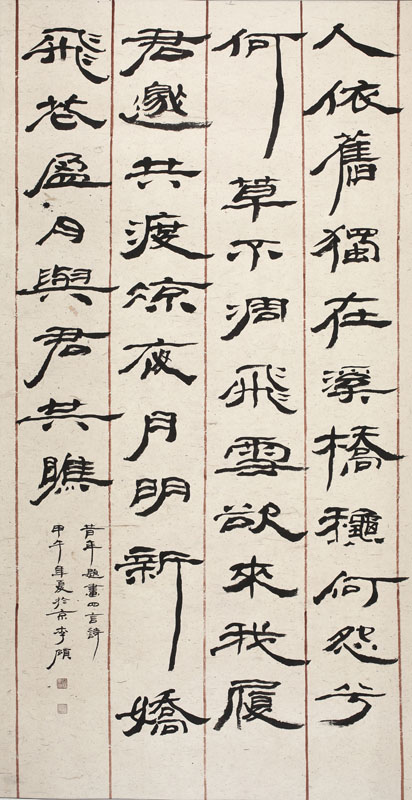 人依舊獨在溪橋穐何怨兮
何草不凋飛雪欲來我履
君邀共渡涼夜月明新嬌
飛花盈月與君共瞧
昔年題畫四言詩
甲午年夏於京李